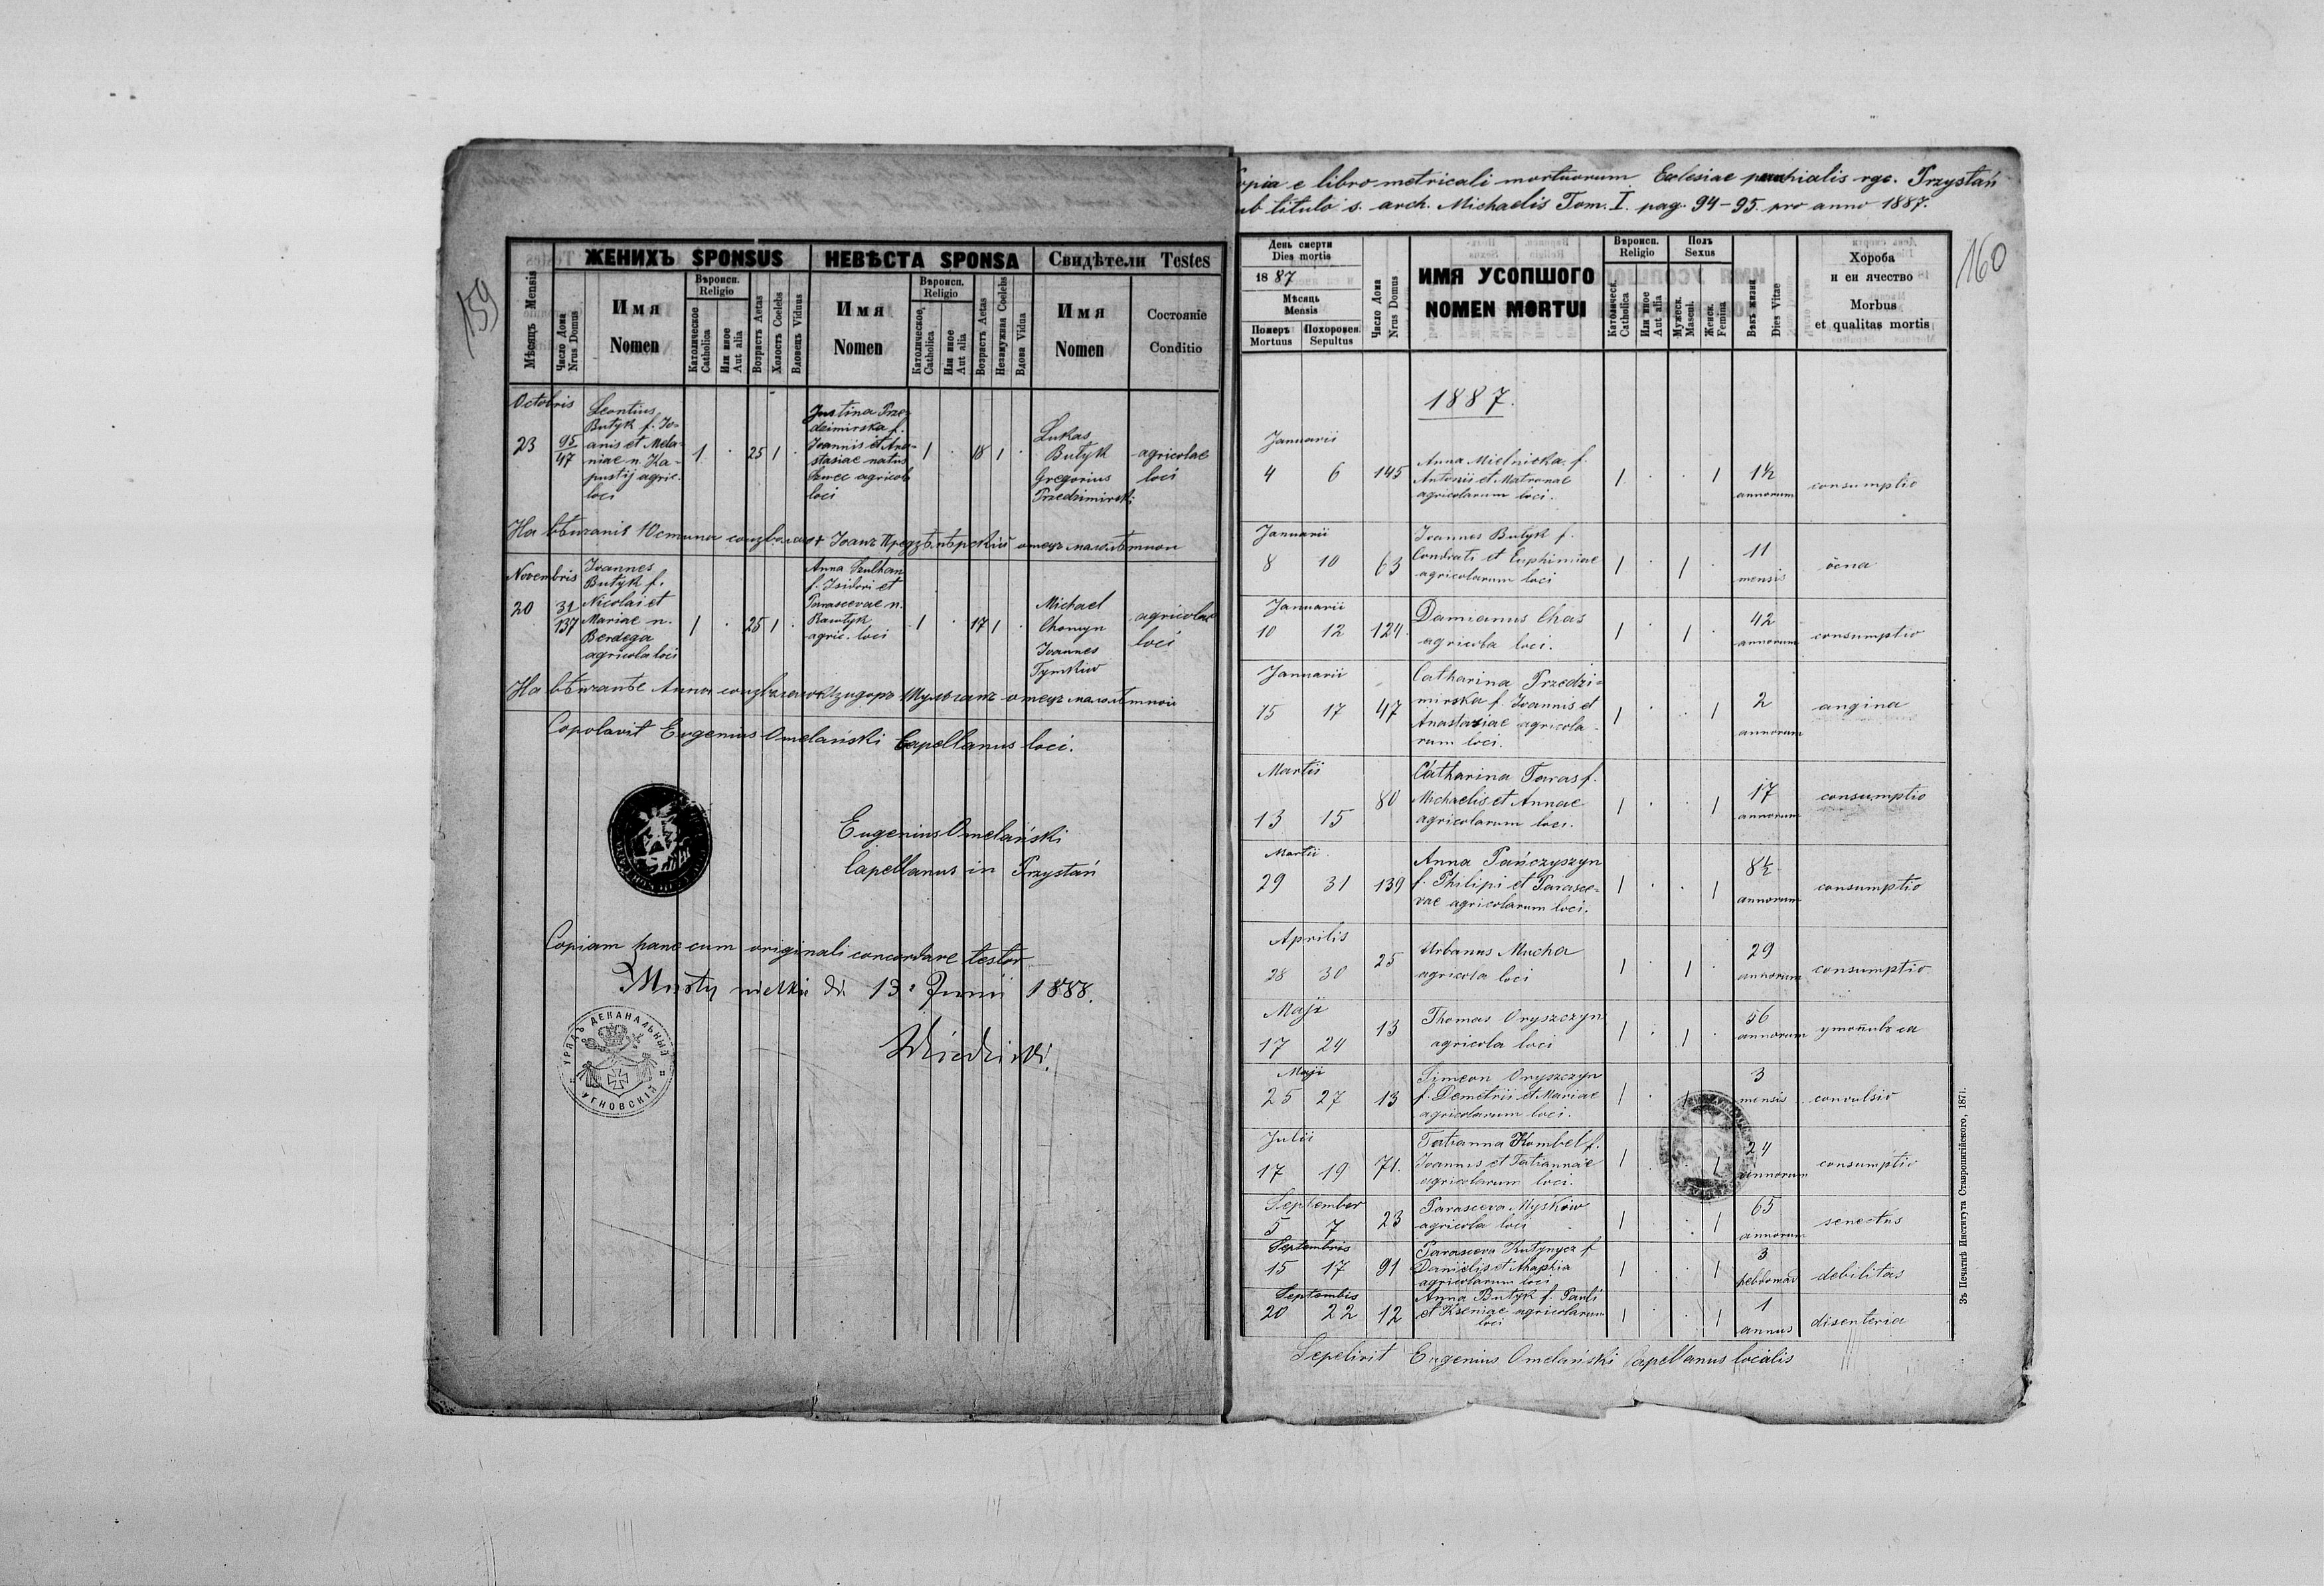 159
ЖЕНИХЪ SPONSUS
НЕВѢСТА SPONSA
Свидѣтели Testes
Мѣсяцъ Mensis
Число Дома
Nrus Domus
Имя
Nomen
Вѣроисп.
Religio
Католическое
Catholica
Или иное
Aut alia
Возрастъ Aetas
Холостъ Coelebs
Вдовець Viduus
Имя
Nomen
Вѣроисп.
Religio
Католическое
Catholica
Или иное
Aut alia
Возрастъ Aetas
Незамужная Coelebs
Вдова Vidua
Имя
Nomen
Состояніе
Conditio
Octobris
23
95
47
Leontius
Butyk f. Jo-
anis et Mela-
niae n. Ka-
pustij agric.
loci
1 . 25 1 .
Justina Prze-
dzimirska f.
Joannis et Ana-
stasiae natus
Szwec agricol
loci
1 . 18 1 .
Lukas
Butyk
Gregorius
Przedzimirski
agricolae
loci
На вѣнчаніе Юстины
отецъ малолѣтнои
Novembris
20
31
137
Joannes
Butyk f.
Nicolai et
Mariae n.
Berdega
agricola loci
1 . 25 1 .
Anna Szulhan
f. Isidori et
Parascevae n.
agric. loci
1 . 17 1 .
Michael
Chomyn
Joannes
Tymkiw
agricolae
loci
На вѣнчанье Анны
отецъ малолѣтнои
Copolavit Eugenius Omelański Capellanus loci.
Eugenius Omelański
Capellanus in Przystań
Copiam hanc cum originali concordare testor
Mosty wielkie d. 13 Junii 1888.
УРЯДЪ ДЕКАНАЛЬНЫЙ
УГНОВСКІЙ
Copia e libro metricali mortuorum Eclesiae parochialis rgc. Przystań
sub titulo s. arch. Michaelis Tom. I. pag. 94-95 pro anno 1887.
160
День смерти
Dies mortis
1887
Мѣсяць
Mensis
Померъ
Mortuus
Похоронен.
Sepultus
Число Дома
Nrus Domus
ИМЯ УСОПШОГО
NOMEN MORTUI
Вѣроисп.
Religio
Католическ.
Catholica
Или иное
Aut alia
Полъ
Sexus
Мужеск.
Mascul.
Женск.
Femina
Вѣкъ жизни
Dies Vitae
Хороба
и еи ячество
Morbus
et qualitas mortis
1887.
Januarii
4 6 145
Anna Mielnicka f.
Antonii et Matronae
agricolarum loci.
1 . . 1
1½
annorum
consumptio
Januarii
8 10 63
Joannes Butyk f.
Condrati et Euphimiae
agricolarum loci
1 . 1 .
11
mensis
Januarii
10 12 124
Damianus Chas
agricola loci.
1 . 1 .
42
annorum
consumptio
Januarii
15 17 47
Catharina Przedzi-
mirska f. Joannis et
Anastaziae agricola-
rum loci.
1 . . 1
2
annorum
angina
Martii
13 15 80
Catharina Taras f.
Michaelis et Annae
agricolarum loci.
1 . . 1
17
annorum
consumptio
Martii
29 31 139
Anna Pańczyszyn
f. Philipi et Parasce-
vae agricolarum loci.
1 . . 1
8½
annorum
consumptio
Aprilis
28 30 25
Urbanus Mucha
agricola loci
1 . 1 .
29
annorum
consumptio
Maji
17 24 13
Thomas Oryszczyn
agricola loci
1 . 1 .
56
annorum
утопивъ ся
Maji
25 27 13
Simeon Oryszczyn
f. Demetrii et Mariae
agricolarum loci.
1 . 1
3
mensis
convulsio
Julii
17 19 71.
Tatianna Kombel f.
Joannis et Tatiannae
agricolarum loci.
1 . . 1
24
annorum
consumptio
September
5 7 23
Parasceva Myśków
agricola loci
1 . 1
65
annorum
senectus
Septembris
15 17 91
Parasceva Kutynycz f
Danielis et Ahaphia
agricolarum loci
1 . 1
3
hebdomad
debilitas
Septembis
20 22 12
Anna Butyk f. Pauli
et Kseniae agricolarum
loci
1 . . 1
1
annus
disenteria
Sepelivit Eugenius Omelański Capellanus localis
Зъ Печатнѣ Института Ставропигійского, 1871.